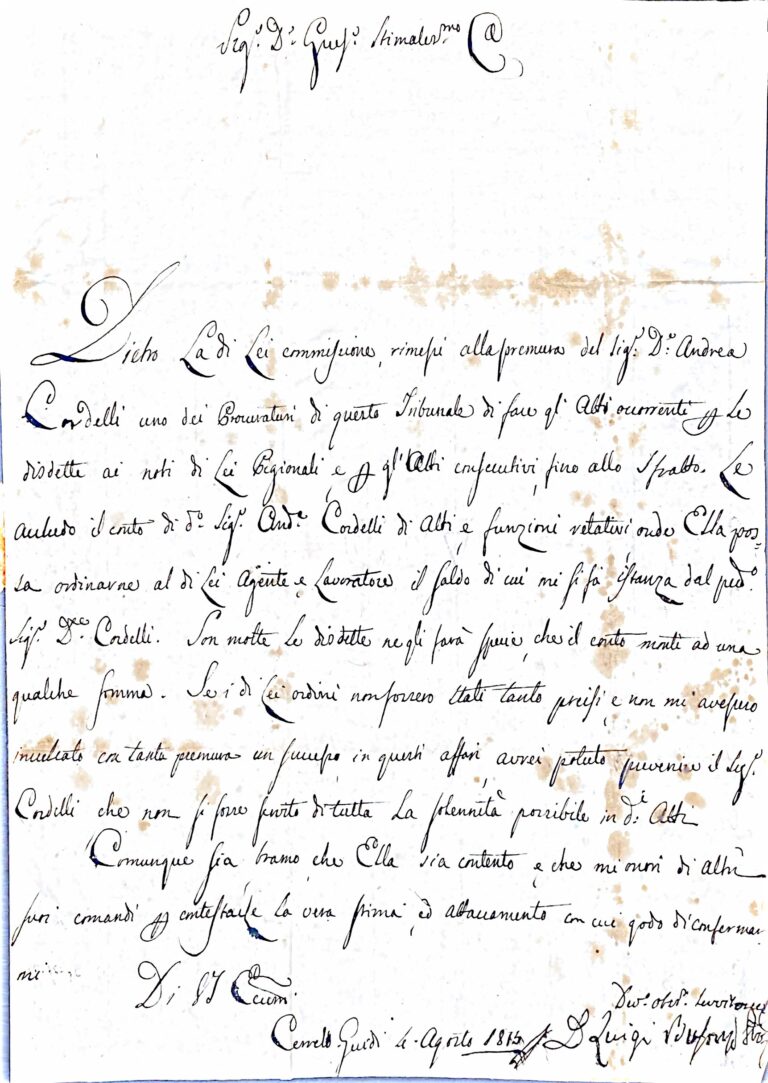 Sig.r D.r Gius.e Stimatis.mo
Dietro La di Lei commissione, rimessi alla premura del Sig.r D.r Andrea
Cordelli uno dei Procuratori di questo Tribunale di fare gl'Atti occorrenti p Le
disdette ai noti di Lei Pigionali, e p gl'Atti consecutivi, fino allo Sfratto. Le
accludo il conto di d.o Sig.r And.a Cordelli di Atti, e funzioni relativi, onde Ella pos=
sa ordinarne al di Lei Agente, e Lavoratore il saldo di cui mi si fà istanza dal pred.o
Sig.r D.re Cordelli. Son molte Le disdette ne gli farà specie, che il conto monti ad una
qualche somma. Se i di Lei ordini non fossero stati tanto precisi, e non mi avessero
inculcato con tanta premura un successo in questi affari, avrei potuto prevenire il Sig.r
Cordelli che non si fosse servito di tutta La solennità possibile in d.i Atti
Comunque sia bramo, che Ella sia contento, e che mi onori di altri
suoi comandi p contestarle La vera stima, ed attaccamento con cui godo di confermar
mi
Di VS Eccma
Dev.o obb.o Servitore
Cerreto Guidi 4. Agosto 1815 D Luigi